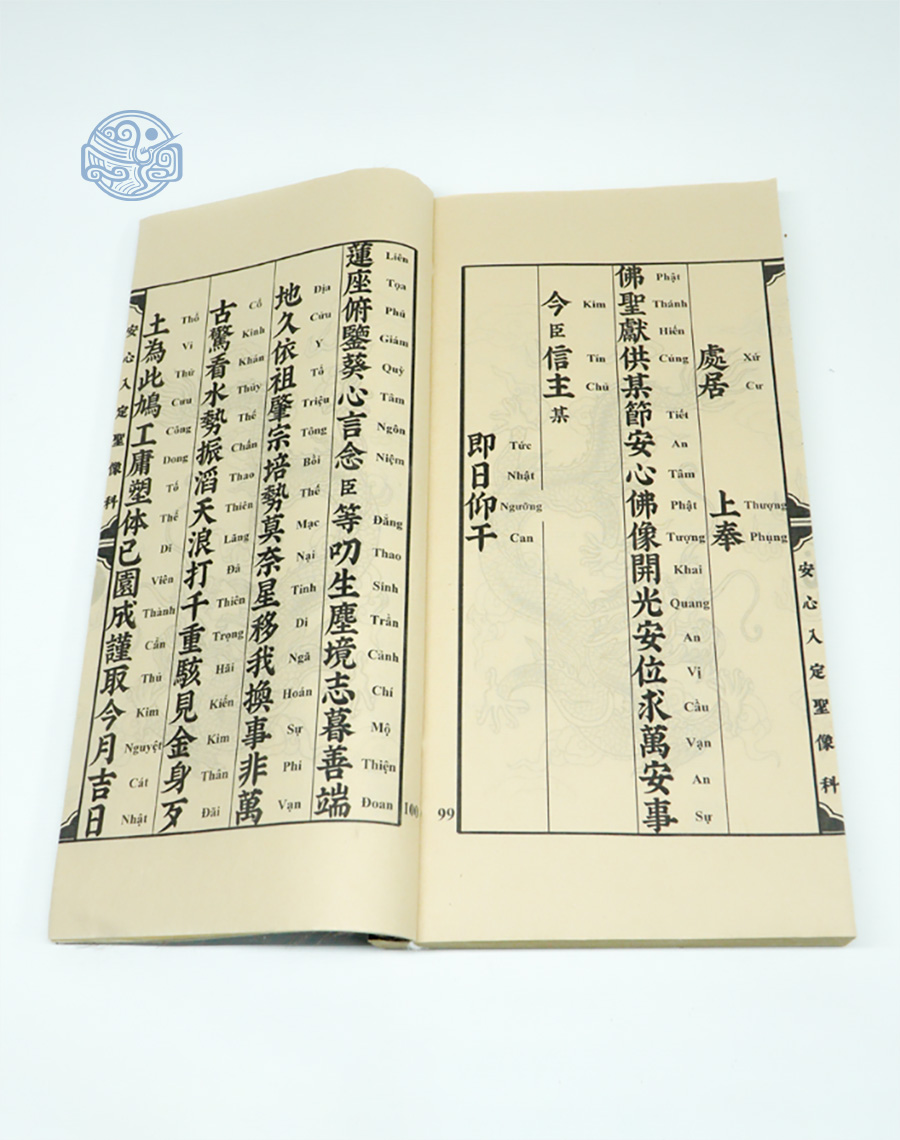 安心入定聖像科
處居 Xứ Cư
上奉 Thượng Phụng
佛聖獻供某節安心佛像開光安位求萬安事 Phật Thánh Hiến Cúng Tiết An Tâm Phật Tượng Khai Quang An Vị Cầu Vạn An Sự
今臣信主某 Kim Tín Chủ
即日仰干 Tức Nhật Ngưỡng Can
99
蓮座俯鑒葵心言念臣等叨生塵境志暮善端 Liên Tọa Phủ Giám Quỳ Tâm Ngôn Niệm Đẳng Thao Sinh Trần Cảnh Chí Mộ Thiện Đoan
地久依祖肇宗培勢莫奈星移我換事非萬 Địa Cửu Y Tổ Triệu Tông Bồi Thế Mạc Nại Tinh Di Ngã Hoán Sự Phi Vạn
古驚看水勢振滔天浪打千重駭見金身歹 Cổ Kinh Khán Thủy Thế Chấn Thao Thiên Lãng Đả Thiên Trọng Hãi Kiến Kim Thân Đãi
土為此鳩工庸塑体已園成謹取今月吉日 Thổ Vi Thử Cưu Công Dong Tố Thể Dĩ Viên Thành Cẩn Thủ Kim Nguyệt Cát Nhật
安心入定聖像科
100